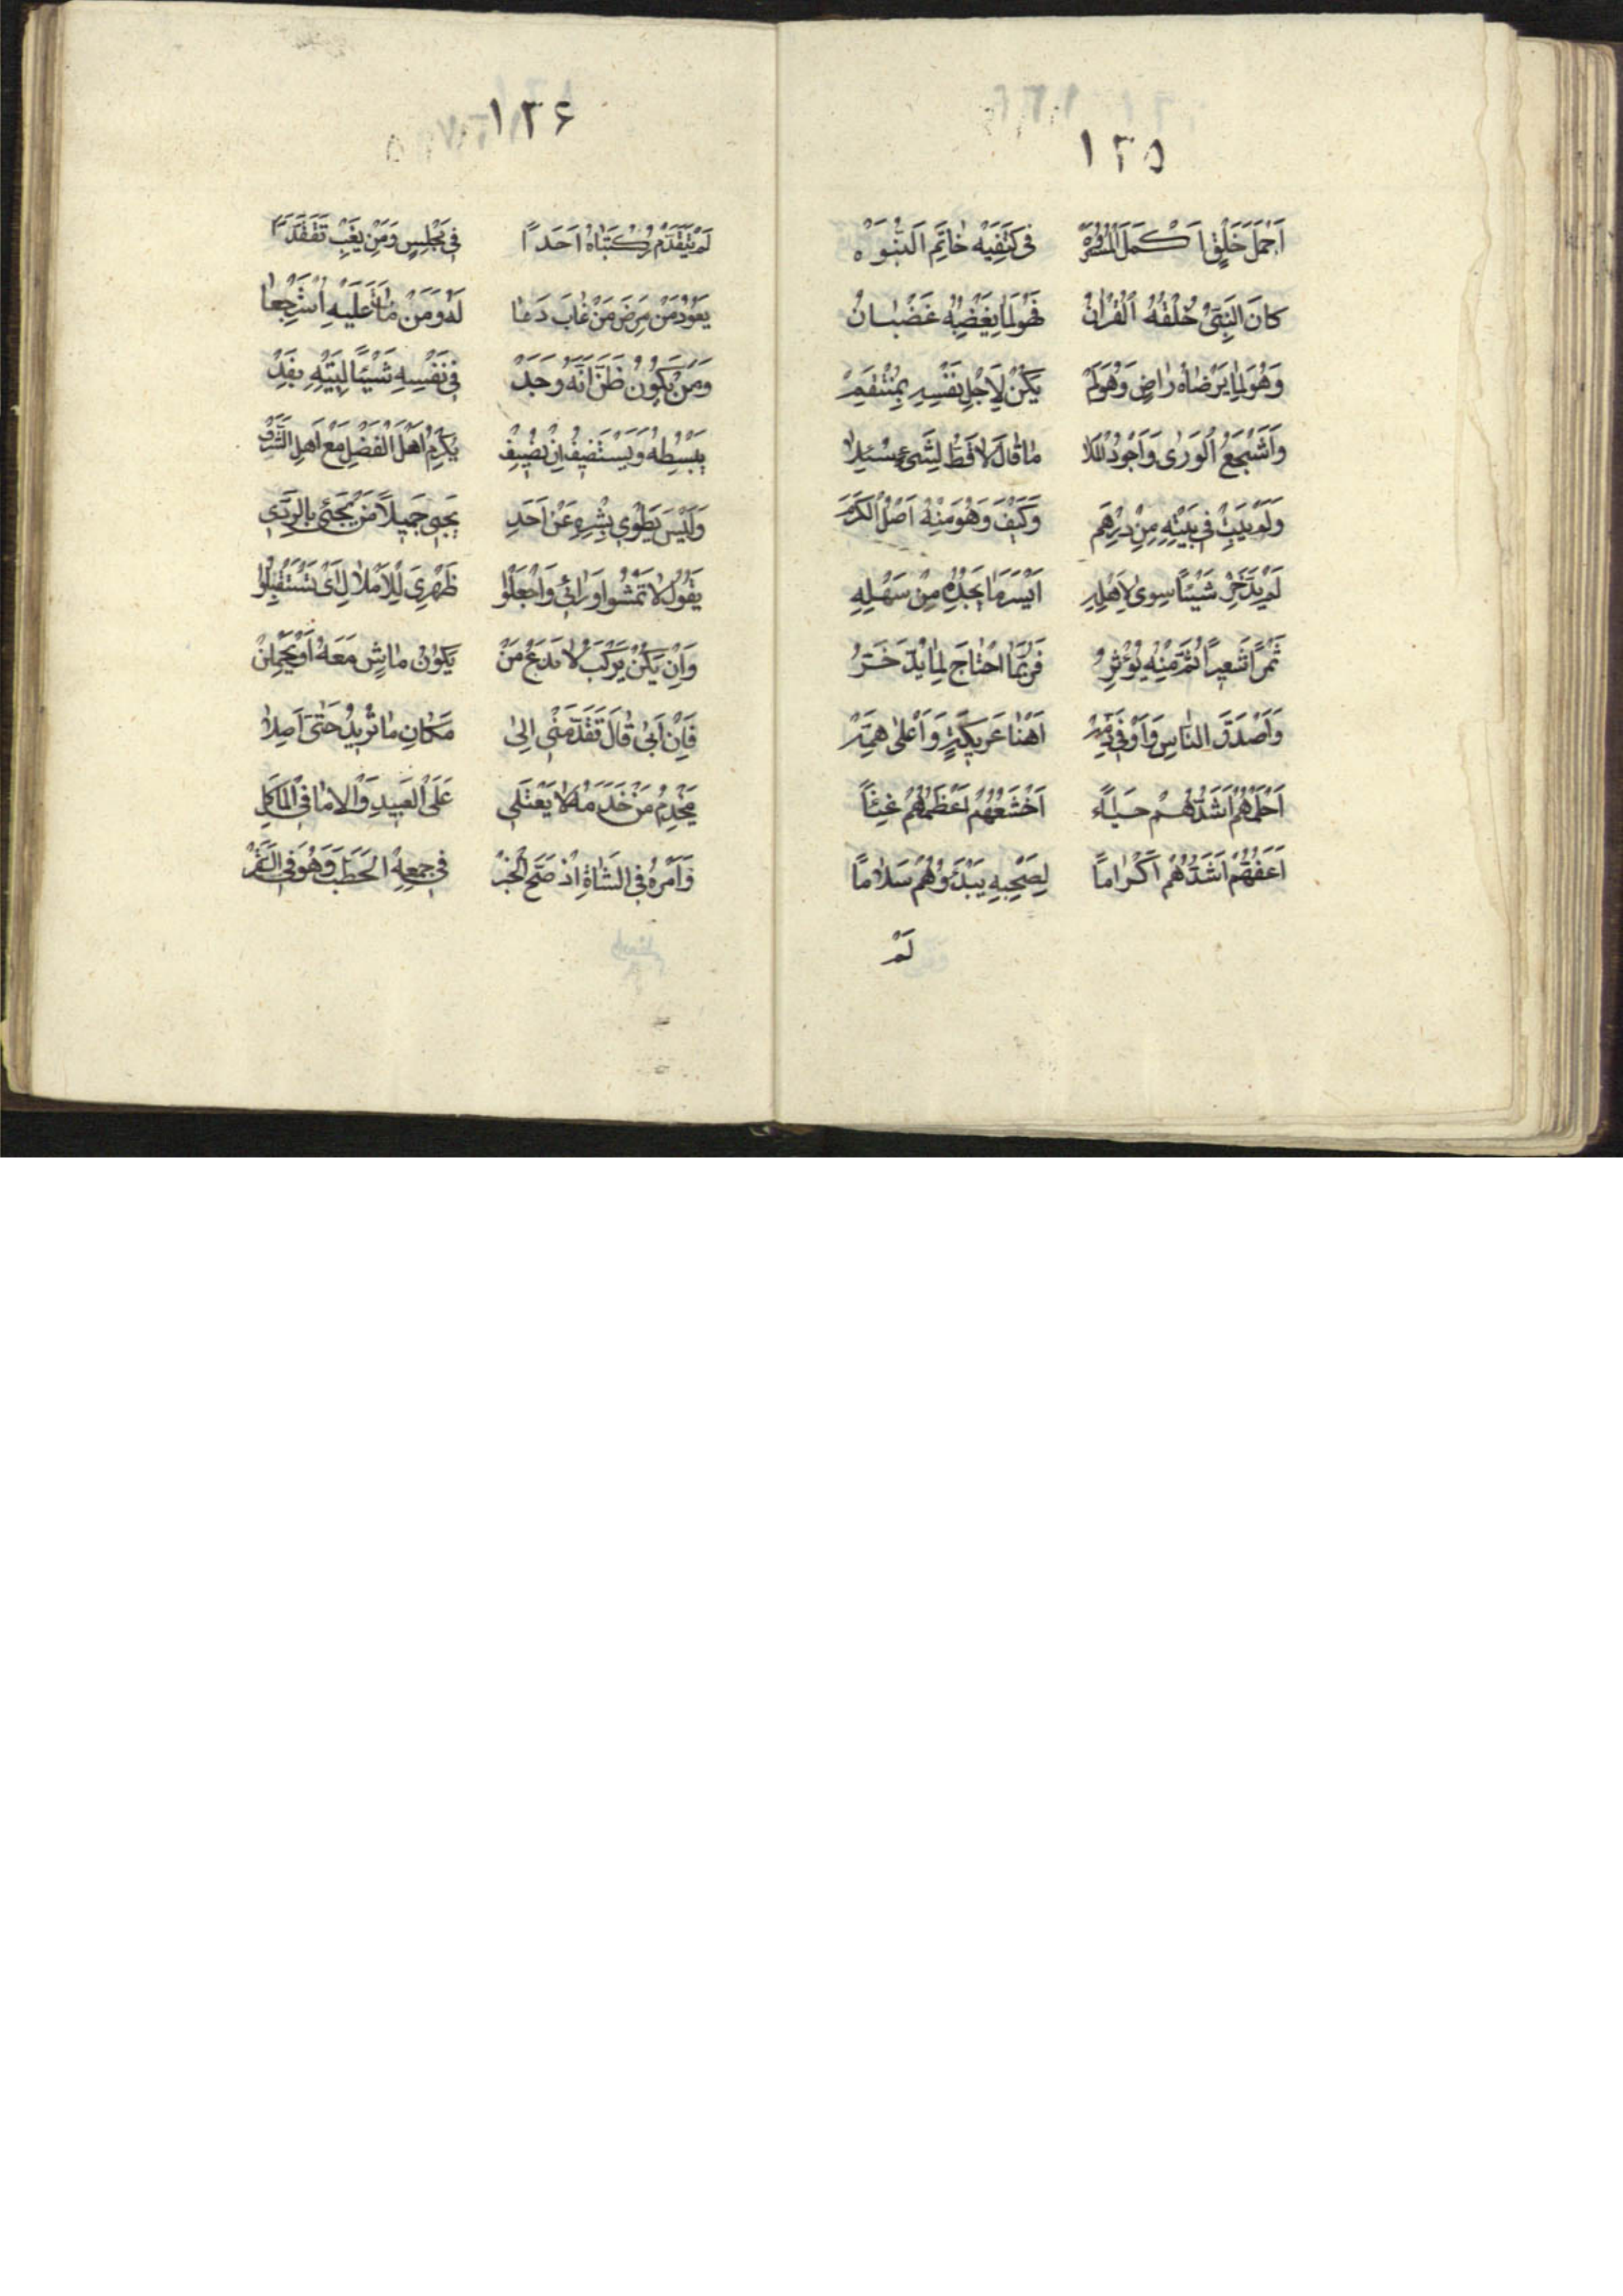 ١٣٥
اَجْمَلَ خَلْقٍ اَكْمَلَ الْمُرُوَّةْ فى كَتْفَيْهِ خاتَمِ النُّبُوَّهْ
كانَ النَّبِىُّ خُلْقُهُ الْقُرْاٰنُ فَهُوَ لِمَا يُغْضِبُهُ غَضْبَانُ
وَهُوَ لِمَا يَرْضَاهُ رَاضٍ وَهُوَ لَمْ يَكُنْ لِاَجْلِ نَفْسِهِ بِمُنْتَقِمْ
وَاَشْجَعُ الْوَرٰى وَاَجْوَدُ الْمَلَا مَا قَالَ لَا قَطُّ لِشَىْءٍ سُئِلَا
وَلَمْ يَبِتْ فِى بَيْتِهِ مِنْ دِرْهَمِ وَكَيْفَ وَهُوَ مِنْهُ اَصْلُ الْكَرَمِ
لَمْ يَدَّخِرْ شَيْئًا سِوٰى لِاَهْلِهِ اَيْسَرَ مَا يَجِدُهُ مِنْ سَهْلِهِ
تَمْرًا شَعِيرًا ثُمَّ مِنْهِ يُؤْثِرُ فَرُبَّمَا احْتَاجَ لِمَا يَدَّخِرُ
وَاَصْدَقَ النَّاسِ وَاَوْفٰى ذِمَّةْ اَهْنَا عَرِيكَةٍ وَاَعْلٰى هِمَّةْ
اَحْلَمُهُمْ اَشَدُّهُمْ حَيَاءً اَخْشَعُهُمْ اَعْظَمُهُمْ
اَعَفُّهُمْ اَشَدُّهُمْ اَكْرَامًا لِصَحْبِهِ يَبْدَؤُهُمْ سَلَامًا
لَمْ
١٣٦
لَمْ يَتَقَدَّمْ رُكْبَتَاهُ اَحَدًا فِى مَجْلِسٍ وَمَنْ يَغِبْ تَفَقَّدَا
يَعُودُ مَنْ مَرِضَ مَنْ غَابَ دَعَا لَهُ وَمَنْ مَاتَ عَلَيْهِ اسْتَرْجَعَا
وَمَنْ يَكُونُ ظَنَّ اَنَّهُ وَجَدْ فِى نَفْسِهِ شَيْئًا لِبَيْتِهِ يَفِدْ
يَبْسُطُهُ وَيَسْتَضِيفُ اِنْ يُضِفْ يُكْرِمُ اَهْلَ الْفَضْلِ مَعْ اَهْلِ الشَّرَفْ
وَلَيْسَ يَطْوِى بِشْرَهُ عَنْ اَحَدِ يَجِى جَمِيلًا مَنْ يَجِئ بِالرَّدِى
يَقُولُ لَا تَمْشُوا وَرَائِى وَاجْعَلُوا ظَهْرِى لِلْاَمْلَاكِ اَىْ تَسْتَقْبِلُوا
وَاِنْ يَكُنْ يَرْكَبُ لَا يَدَعْ مَنْ يَكُونُ مَاشٍ مَعَهُ اَوْ يَحْمِلَنْ
فَاِنْ اَبٰى قَالَ تَقَدَّمَنِّى اِلٰى مَكَانِ مَا تُرِيدُ حَتّٰى اَصِلَا
يَخْدِمُ مَنْ خَدَمَهُ لَا يَعْتَلِى عَلَى الْعَبِيدِ وَالْاِمَا فِى الْمَأْكَلِ
وَاَمْرُهُ فِى الشَّاةِ اِذْ صَحَّ الْخَبَرْ فِى جَمْعِهِ الْحَطَبَ وَهُوَ فِى السَّفَرْ